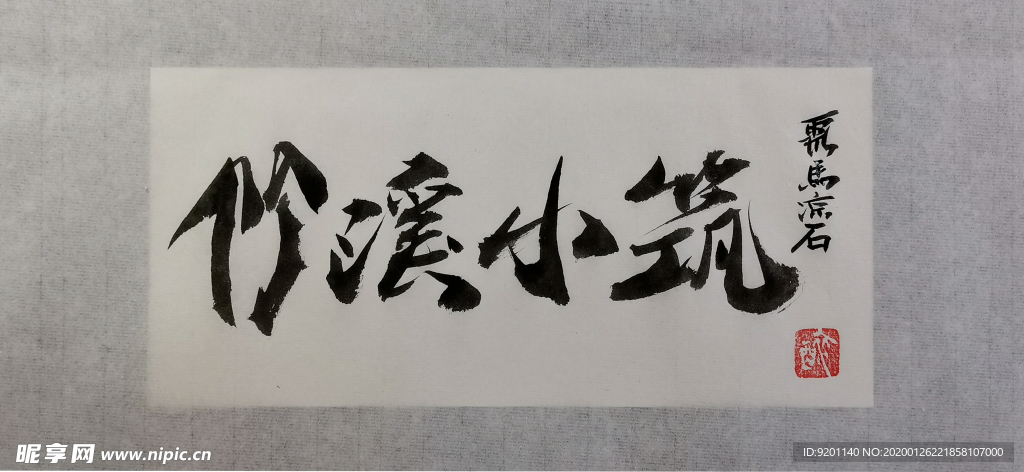 竹溪小筑
馬凉石
昵享网 www.nipic.cn
ID:9201140 NO:20200126221858107000